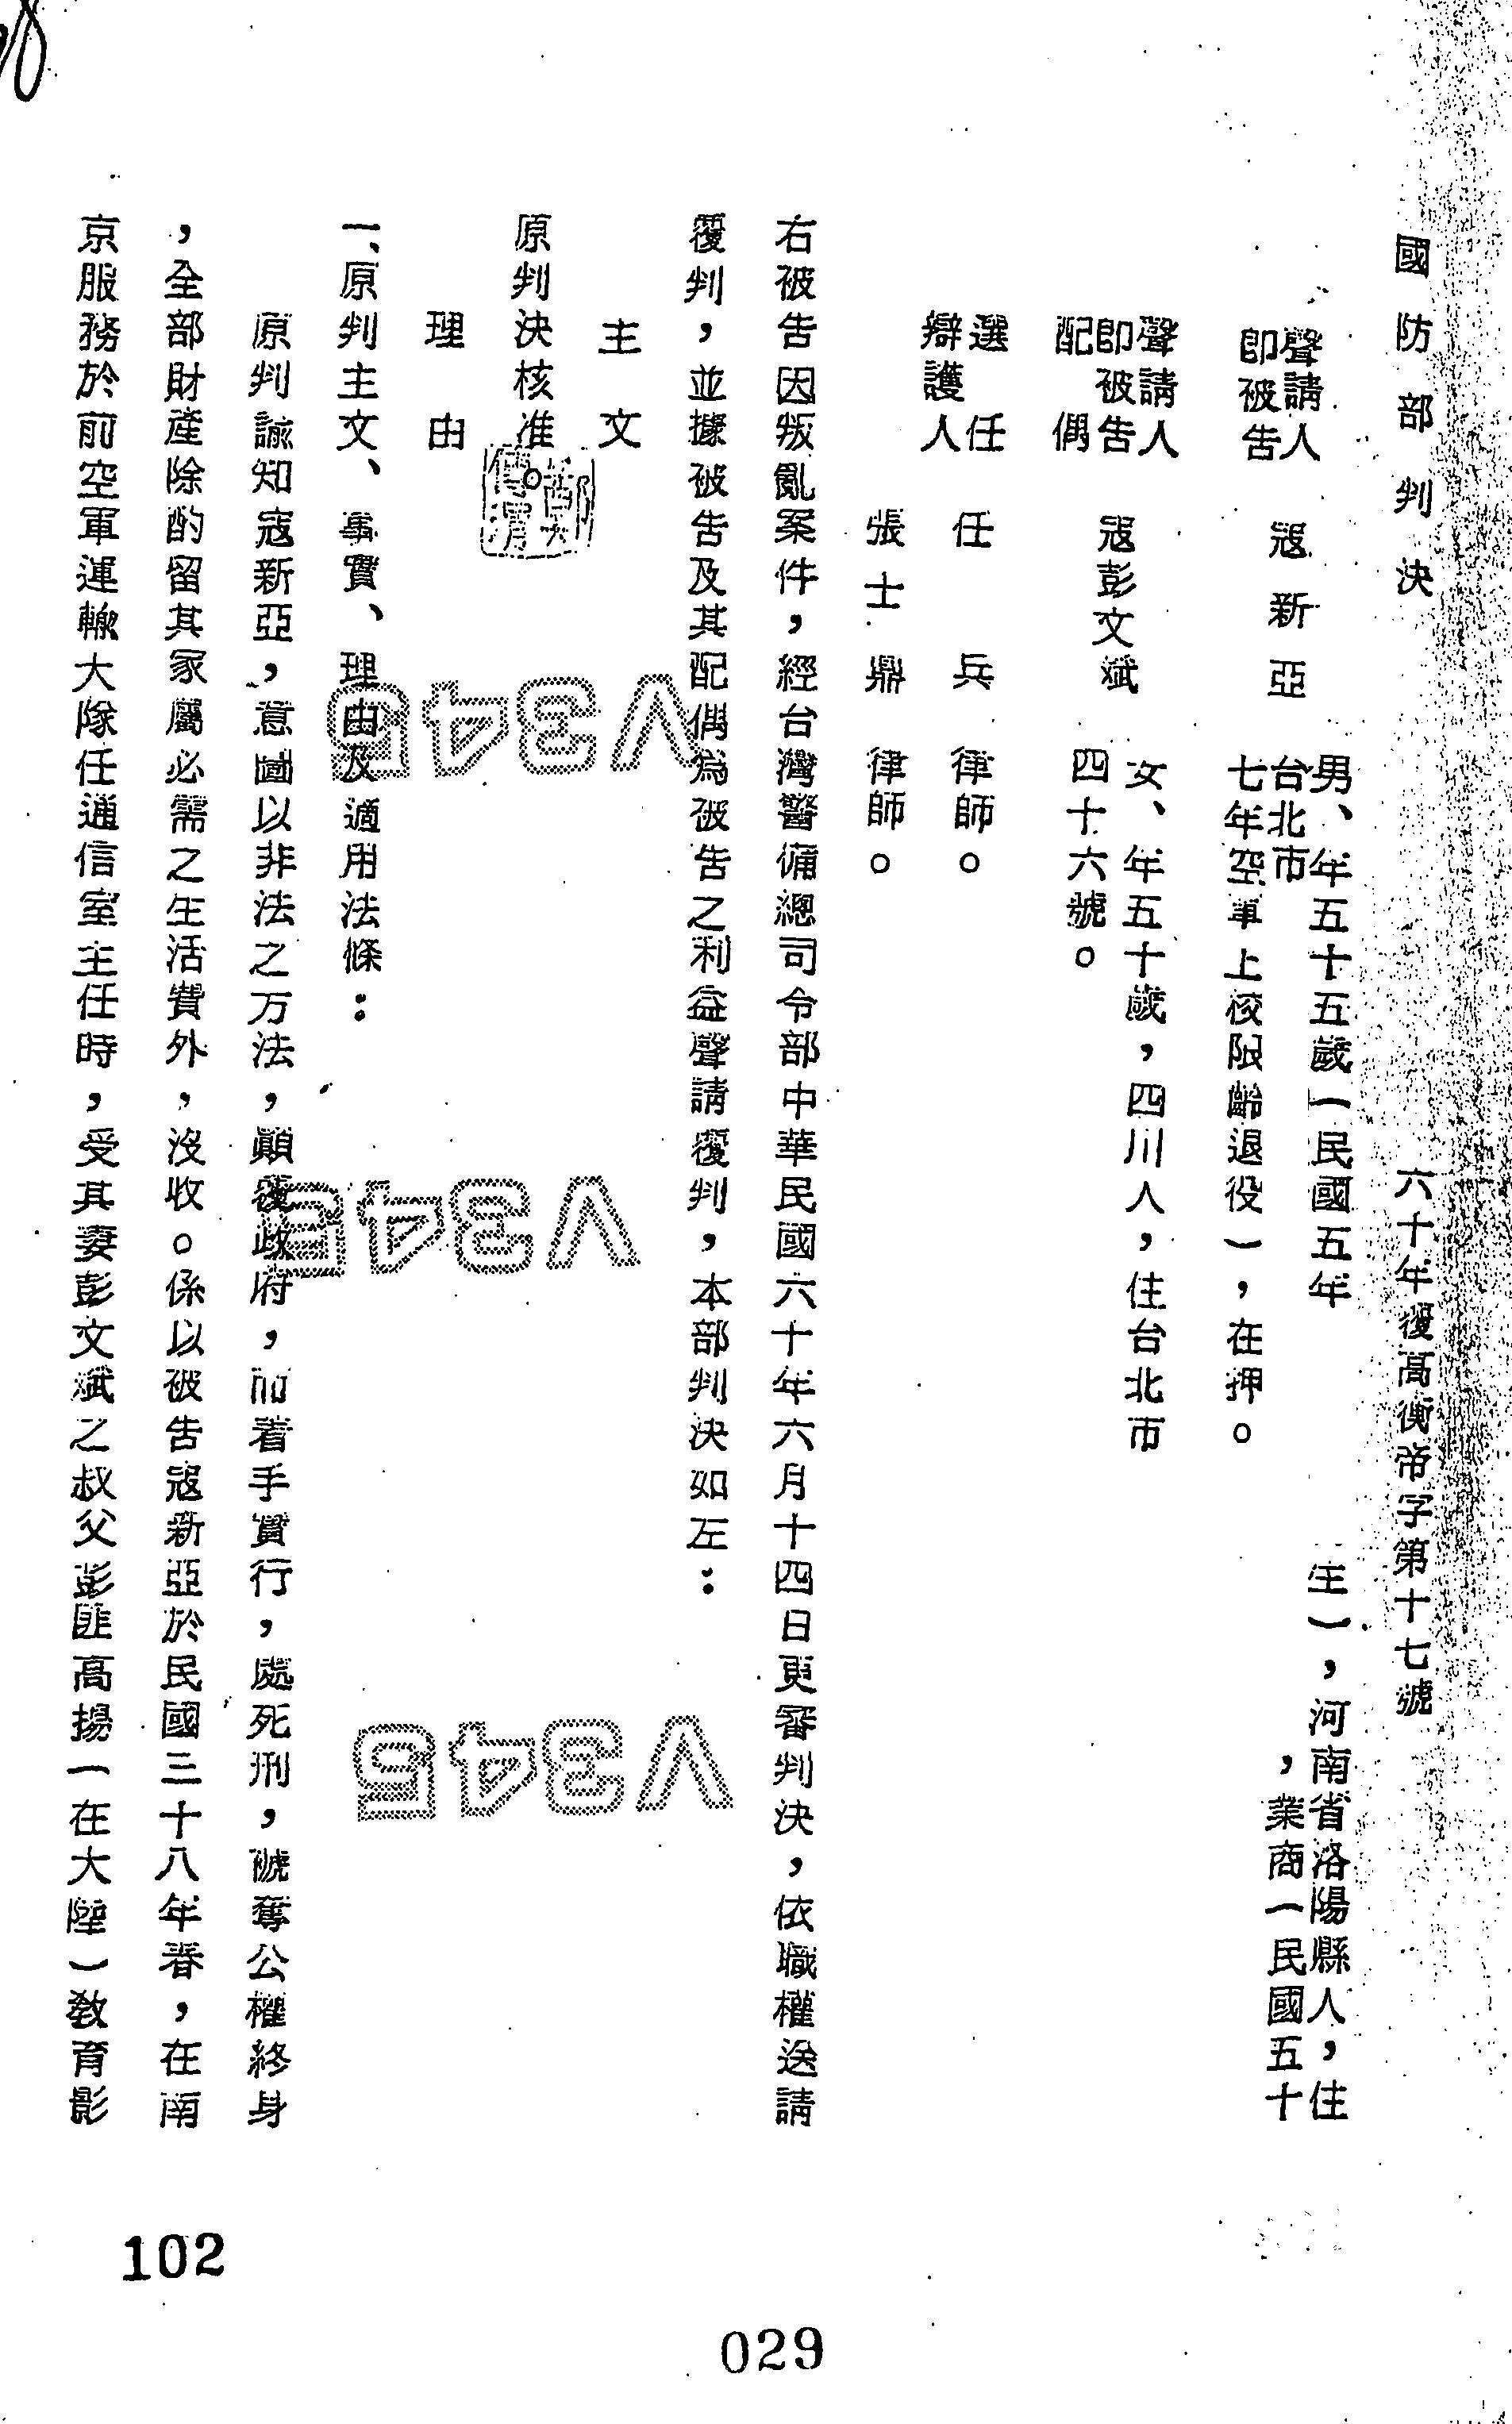 國防部判決
六十年覆高衡帝字第十七號
聲請人
即被告
寇新亞
男、年五十五歲(民國五年
生),河南省洛陽縣人,住
台北市
,業商(民國五十
七年空軍上校限齡退役),在押。
聲請人
即被告
配偶
寇彭文斌
女、年五十歲,四川人,住台北市
四十六號。
選任
辯護人
任兵律師。
張士鼎律師。
右被告因叛亂案件,經台灣警備總司令部中華民國六十年六月十四日更審判決,依職權送請
覆判,並據被告及其配偶為被告之利益聲請覆判,本部判決如左:
主文
原判決核准。
理由
一、原判主文、事實、理由及適用法條:
原判諭知寇新亞,意圖以非法之方法,顛覆政府,而着手實行,處死刑,褫奪公權終身
,全部財產除酌留其家屬必需之生活費外,沒收。係以被告寇新亞於民國三十八年春,在南
京服務於前空軍運輸大隊任通信室主任時,受其妻彭文斌之叔父彭匪高揚(在大陸)教育影
V345
V345
V345
102
029